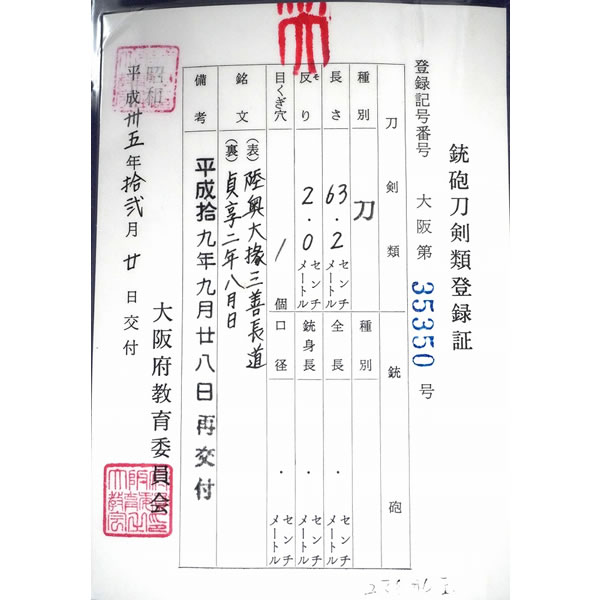 銃砲刀剣類登録証
登録記号番号 大阪第 35350 号
刀剣類 銃砲
種別 刀 種別
長さ 63.2 センチメートル 全長 ・ センチメートル
反り 2.0 センチメートル 銃身長 ・ センチメートル
そ
目くぎ穴 1 個 口径 ・ センチメートル
銘文 (表) 陸奥大掾三善長道
(裏) 貞享二年八月日
備考 平成拾九年九月廿八日再交付
昭和
平成 卅五年拾弐月廿日交付
大阪府教育委員会